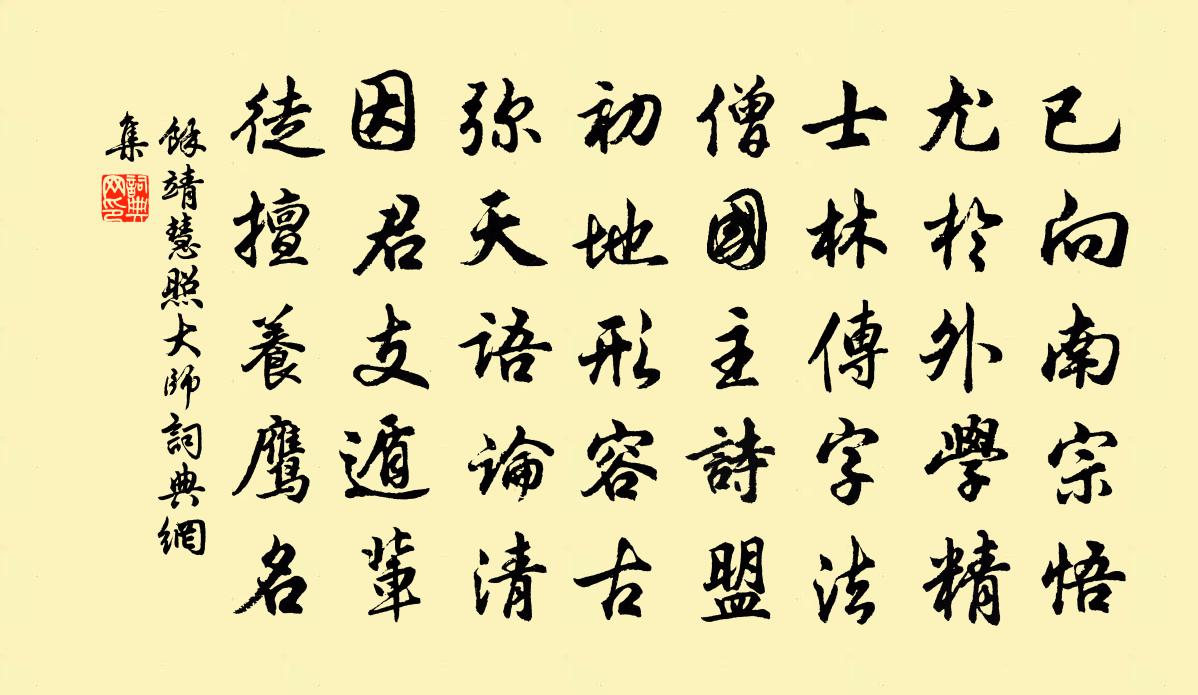 已向南宗悟
尤於外學精
士林傳字法
僧國主詩盟
初地形容古
弥天語論清
因君支遁輩
徒擅養鷹名
餘靖慧照大師詞典網
集
詞典
网印